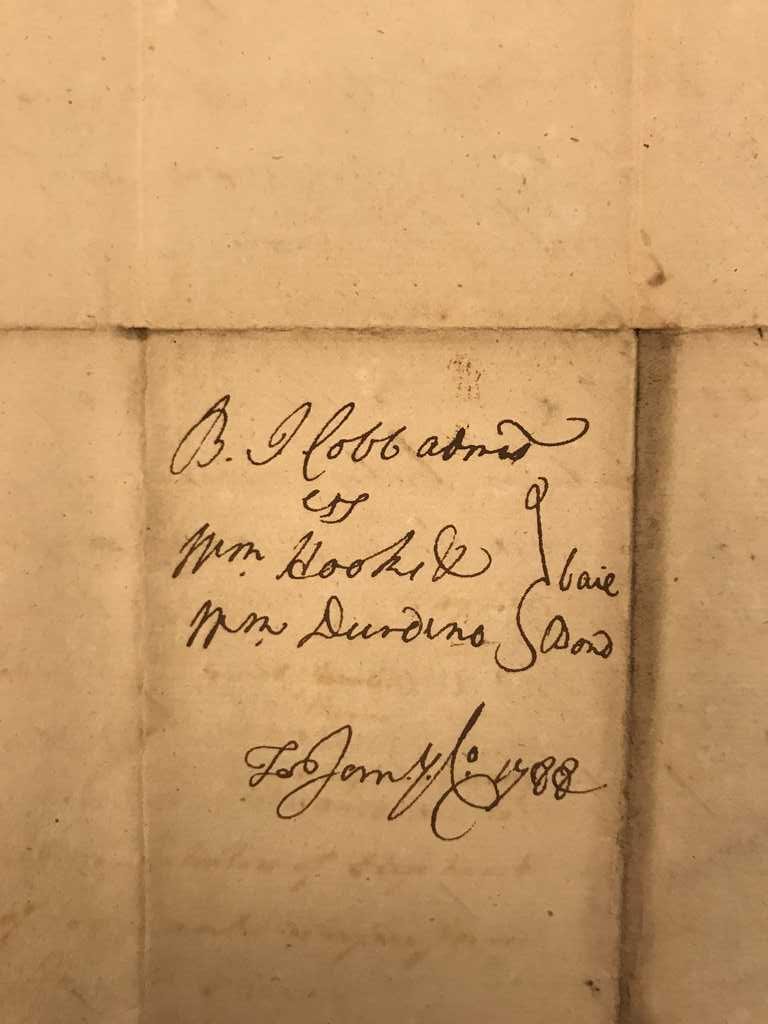 B. J Cobb admrs
vs
Wm Hooks &
Wm Durdens
baie
Bond
To Jany. Co. 1788